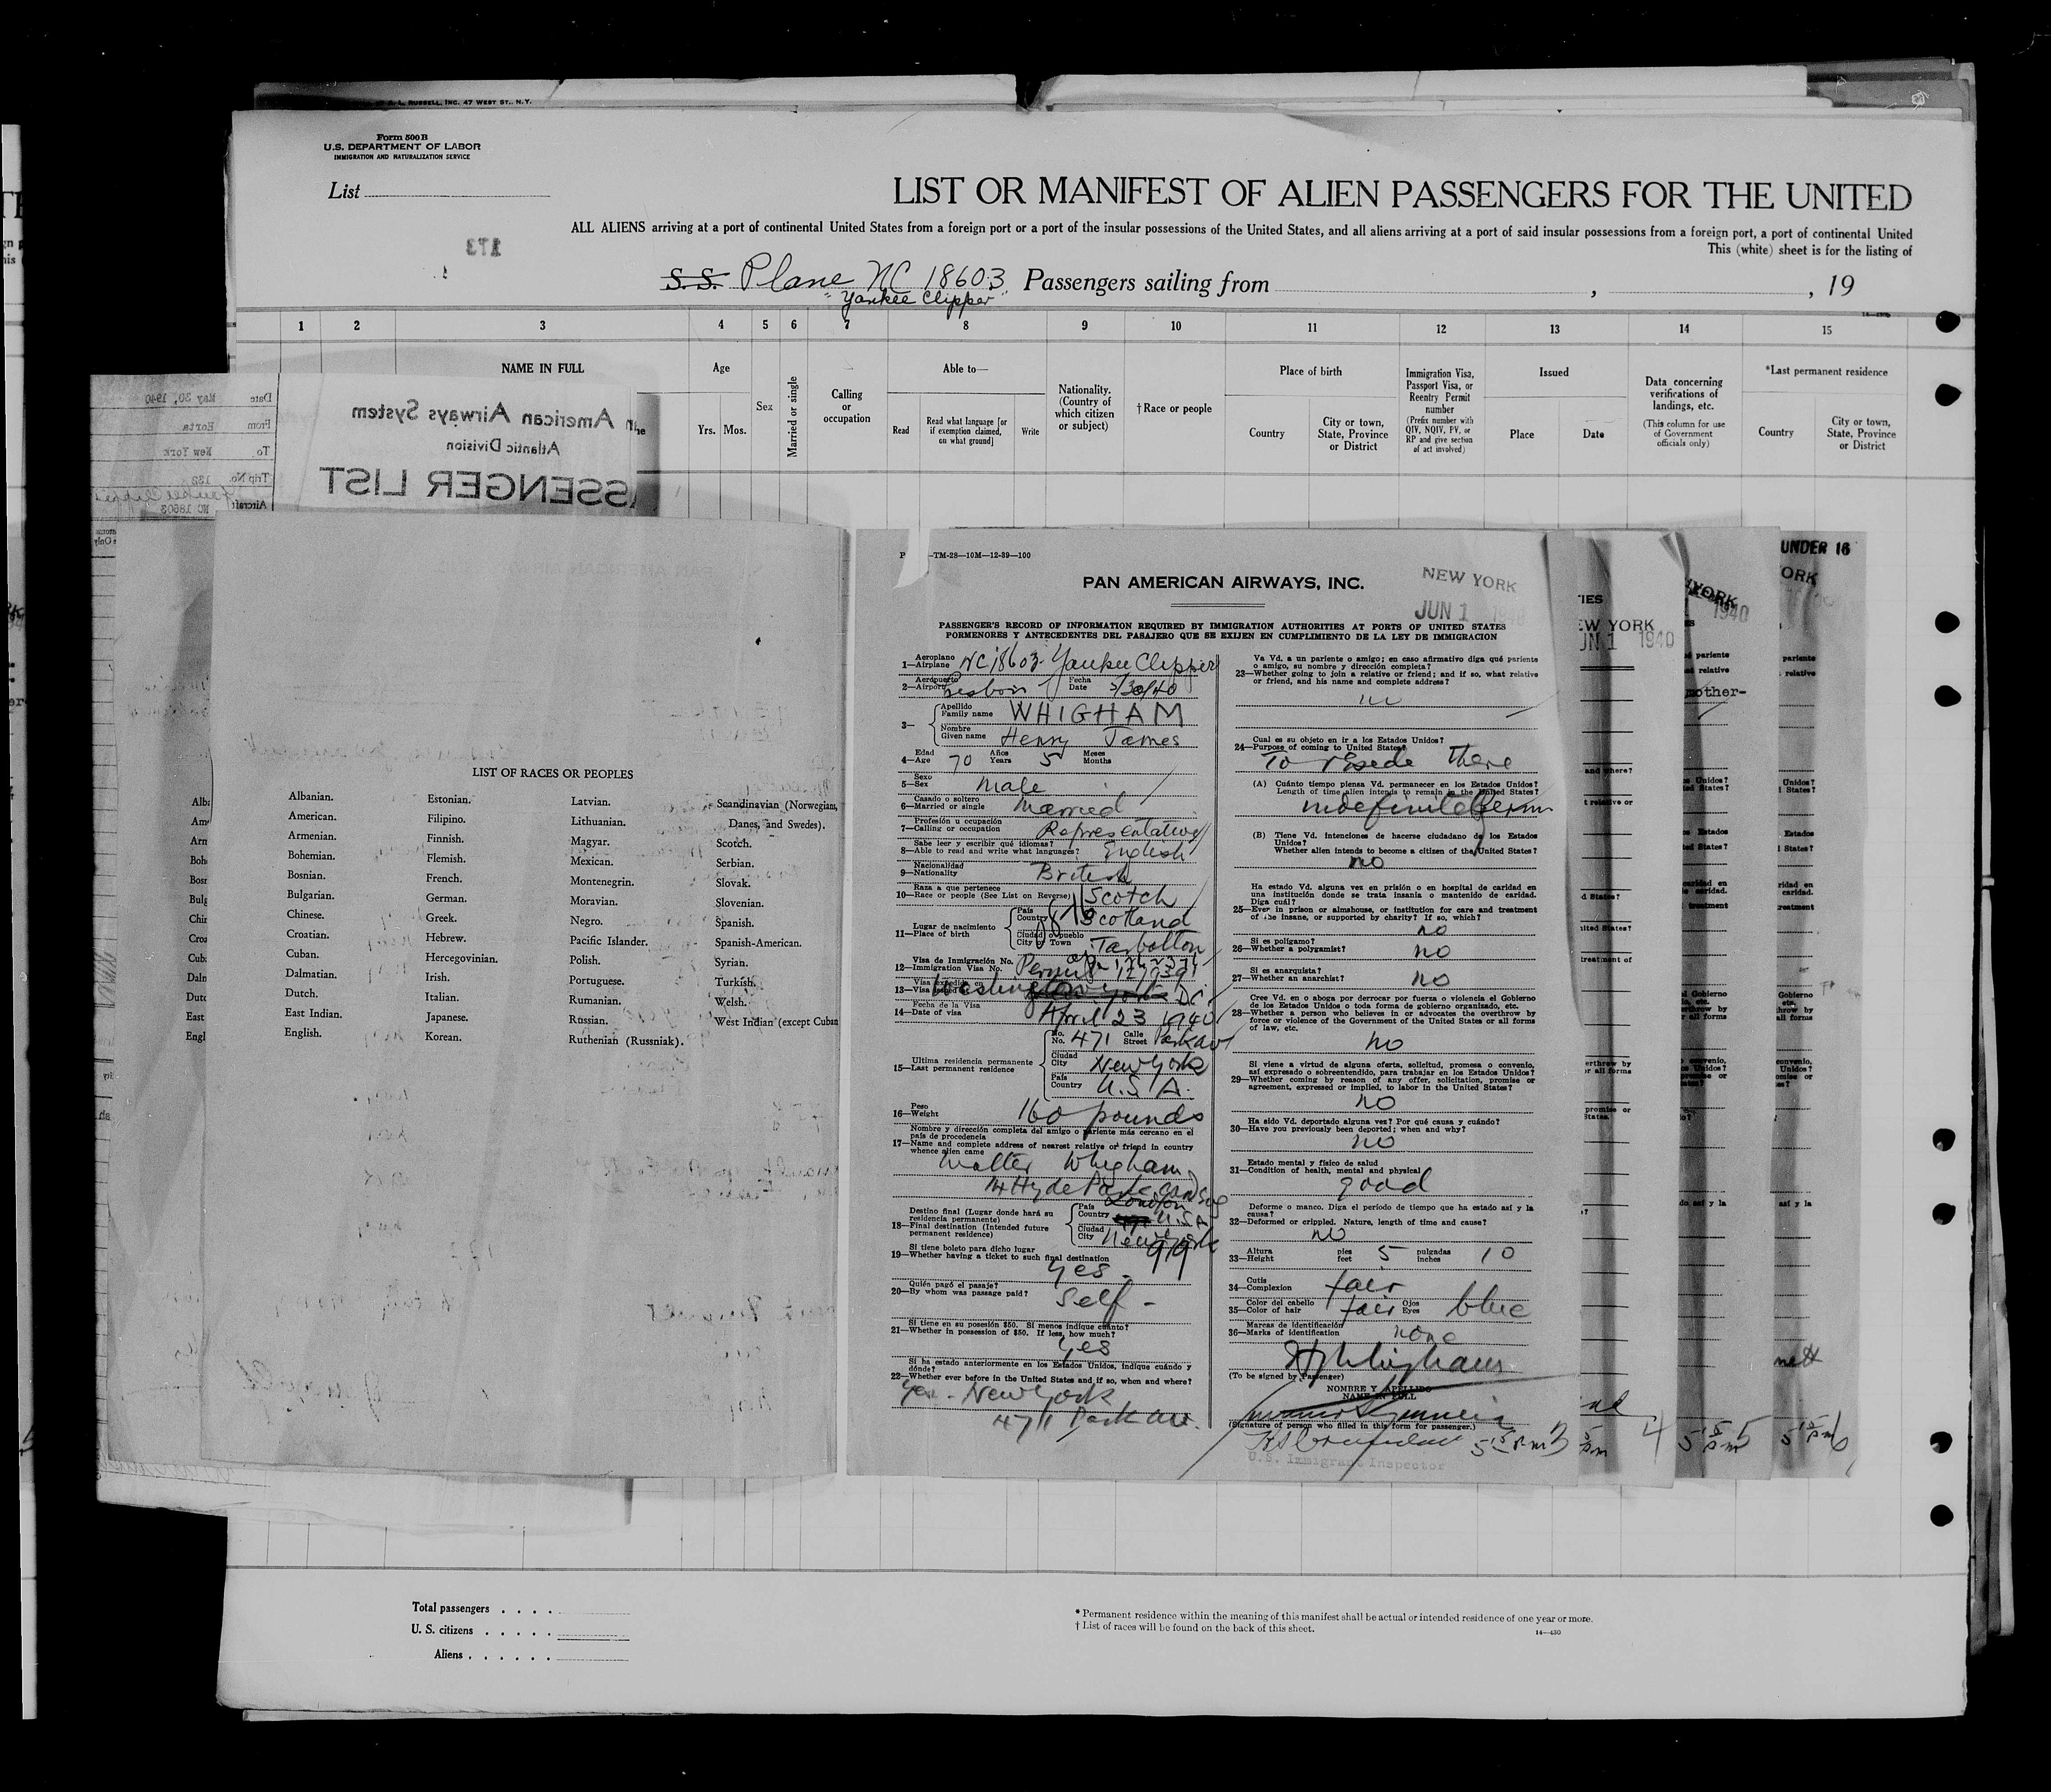 A. L. RUSSELL, INC. 47 WEST ST., N.Y.
Form 500 B
U.S. DEPARTMENT OF LABOR
IMMIGRATION AND NATURALIZATION SERVICE
List
LIST OR MANIFEST OF ALIEN PASSENGERS FOR THE UNITED
ALL ALIENS arriving at a port of continental United States from a foreign port or a port of the insular possessions of the United States, and all aliens arriving at a port of said insular possessions from a foreign port, a port of continental United
This (white) sheet is for the listing of
173
S.S. Plane NC 18603 Passengers sailing from , , 19
"Yankee Clipper"
1 2 3 4 5 6 7 8 9 10 11 12 13 14 15
NAME IN FULL
Age
Yrs. Mos.
Sex
Married or single
Calling or occupation
Able to—
Read
Read what language [or if exemption claimed, on what ground]
Write
Nationality. (Country of which citizen or subject)
†Race or people
Place of birth
Country
City or town, State, Province or District
Immigration Visa, Passport Visa, or Reentry Permit number
(Prefix number with QIV, NQIV, PV, or RP and give section of act involved)
Issued
Place
Date
Data concerning verifications of landings, etc.
(This column for use of Government officials only)
*Last permanent residence
Country
City or town, State, Province or District
American Airways System
Atlantic Division
SSENGER LIST
Date May 30, 1940
From Horta
To New York
Trip No. 132
Aircraft Yankee Clipper
NC 18603
LIST OF RACES OR PEOPLES
Albanian.
American.
Armenian.
Bohemian.
Bosnian.
Bulgarian.
Chinese.
Croatian.
Cuban.
Dalmatian.
Dutch.
East Indian.
English.
Estonian.
Filipino.
Finnish.
Flemish.
French.
German.
Greek.
Hebrew.
Hercegovinian.
Irish.
Italian.
Japanese.
Korean.
Latvian.
Lithuanian.
Magyar.
Mexican.
Montenegrin.
Moravian.
Negro.
Pacific Islander.
Polish.
Portuguese.
Rumanian.
Russian.
Ruthenian (Russniak).
Scandinavian (Norwegians,
Danes, and Swedes).
Scotch.
Serbian.
Slovak.
Slovenian.
Spanish.
Spanish-American.
Syrian.
Turkish.
Welsh.
West Indian (except Cuban
TM-28—10M—12-39—100
PAN AMERICAN AIRWAYS, INC.
NEW YORK
JUN 1 1940
PASSENGER'S RECORD OF INFORMATION REQUIRED BY IMMIGRATION AUTHORITIES AT PORTS OF UNITED STATES
PORMENORES Y ANTECEDENTES DEL PASAJERO QUE SE EXIJEN EN CUMPLIMIENTO DE LA LEY DE IMMIGRACION
Aeroplano
1—Airplane NC18603 Yankee Clipper
Aeropuerto Fecha
2—Airport Lisbon Date 5/30/40
3— Apellido
Family name WHIGHAM
Nombre
Given name Henry James
Edad Años Meses
4—Age 70 Years 5 Months
Sexo
5—Sex Male
Casado o soltero
6—Married or single Married
Profesión u ocupación
7—Calling or occupation Representative
Sabe leer y escribir qué idiomas?
8—Able to read and write what languages? English
Nacionalidad
9—Nationality British
Raza a que pertenece
10—Race or people (See List on Reverse) Scotch
Lugar de nacimiento
11—Place of birth
País
Country Scotland
Ciudad o pueblo
City or Town Tarbolton
Visa de Inmigración No.
12—Immigration Visa No. Permit
13—Visa Washington DC
Fecha de la Visa
14—Date of visa April 23 1940
Ultima residencia permanente
15—Last permanent residence
No. 471 Calle Street Park av
Ciudad
City New York
País
Country U.S.A.
Peso
16—Weight 160 pounds
Nombre y dirección completa del amigo o pariente más cercano en el país de procedencia
17—Name and complete address of nearest relative or friend in country whence alien came
Walter Whigham
14 Hyde Park Gardens
London
Destino final (Lugar donde hará su residencia permanente)
18—Final destination (Intended future permanent residence)
País
Country U.S.A
Ciudad
City New York
Si tiene boleto para dicho lugar
19—Whether having a ticket to such final destination
Yes -
Quién pagó el pasaje?
20—By whom was passage paid? Self -
Si tiene en su posesión $50. Si menos indique cuánto?
21—Whether in possession of $50. If less, how much?
Yes
Si ha estado anteriormente en los Estados Unidos, indique cuándo y dónde?
22—Whether ever before in the United States and if so, when and where?
Yes - New York
471 Park Av.
Va Vd. a un pariente o amigo; en caso afirmativo diga qué pariente o amigo, su nombre y dirección completa?
23—Whether going to join a relative or friend; and if so, what relative or friend, and his name and complete address?
Cual es su objeto en ir a los Estados Unidos?
24—Purpose of coming to United States?
To reside there
(A) Cuánto tiempo piensa Vd. permanecer en los Estados Unidos?
Length of time alien intends to remain in the United States?
indefinitely perm
(B) Tiene Vd. intenciones de hacerse ciudadano de los Estados Unidos?
Whether alien intends to become a citizen of the United States?
no
Ha estado Vd. alguna vez en prisión o en hospital de caridad en una institución donde se trata insania o mantenido de caridad. Diga cuál?
25—Ever in prison or almshouse, or institution for care and treatment of the insane, or supported by charity? If so, which?
no
Si es polígamo?
26—Whether a polygamist? no
Si es anarquista?
27—Whether an anarchist? no
Cree Vd. en o aboga por derrocar por fuerza o violencia el Gobierno de los Estados Unidos o toda forma de gobierno organizado, etc.
28—Whether a person who believes in or advocates the overthrow by force or violence of the Government of the United States or all forms of law, etc.
no
Si viene a virtud de alguna oferta, solicitud, promesa o convenio, así expresado o sobreentendido, para trabajar en los Estados Unidos?
29—Whether coming by reason of any offer, solicitation, promise or agreement, expressed or implied, to labor in the United States?
no
Ha sido Vd. deportado alguna vez? Por qué causa y cuándo?
30—Have you previously been deported; when and why?
no
Estado mental y físico de salud
31—Condition of health, mental and physical
good
Deforme o manco. Diga el período de tiempo que ha estado así y la causa?
32—Deformed or crippled. Nature, length of time and cause?
no
Altura pies pulgadas
33—Height feet 5 inches 10
Cutis
34—Complexion fair
Color del cabello Ojos
35—Color of hair fair Eyes blue
Marcas de identificación
36—Marks of identification none
HJWhigham
(To be signed by Passenger)
NOMBRE Y APELLIDO
NAME IN FULL
(Signature of person who filled in this form for passenger.)
5 15 P.m 3
U.S. Immigrant Inspector
NEW YORK
JUN 1 1940
4
mother-
1940
5 15 pm 5
UNDER 16
5 15 pm 6
Total passengers
U. S. citizens
Aliens
* Permanent residence within the meaning of this manifest shall be actual or intended residence of one year or more.
† List of races will be found on the back of this sheet.
14—430